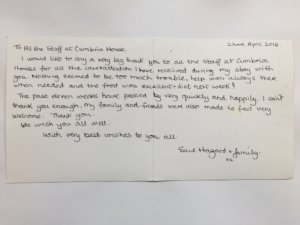 22nd April 2016.
To All the Staff at Cumbria House,
I would like to say a very big thank you to all the staff at Cumbria
House for all the care+attention I have received during my stay with
you. Nothing seemed to be too much trouble, help was always there
when needed and the food was excellent-diet next week!
The past eleven weeks have passed by very quickly and happily. I can't
thank you enough. My family and friends were also made to feel very
welcome. Thank you
We wish you all well.
With very best wishes to you all.
Sue Hazard + family.
xx